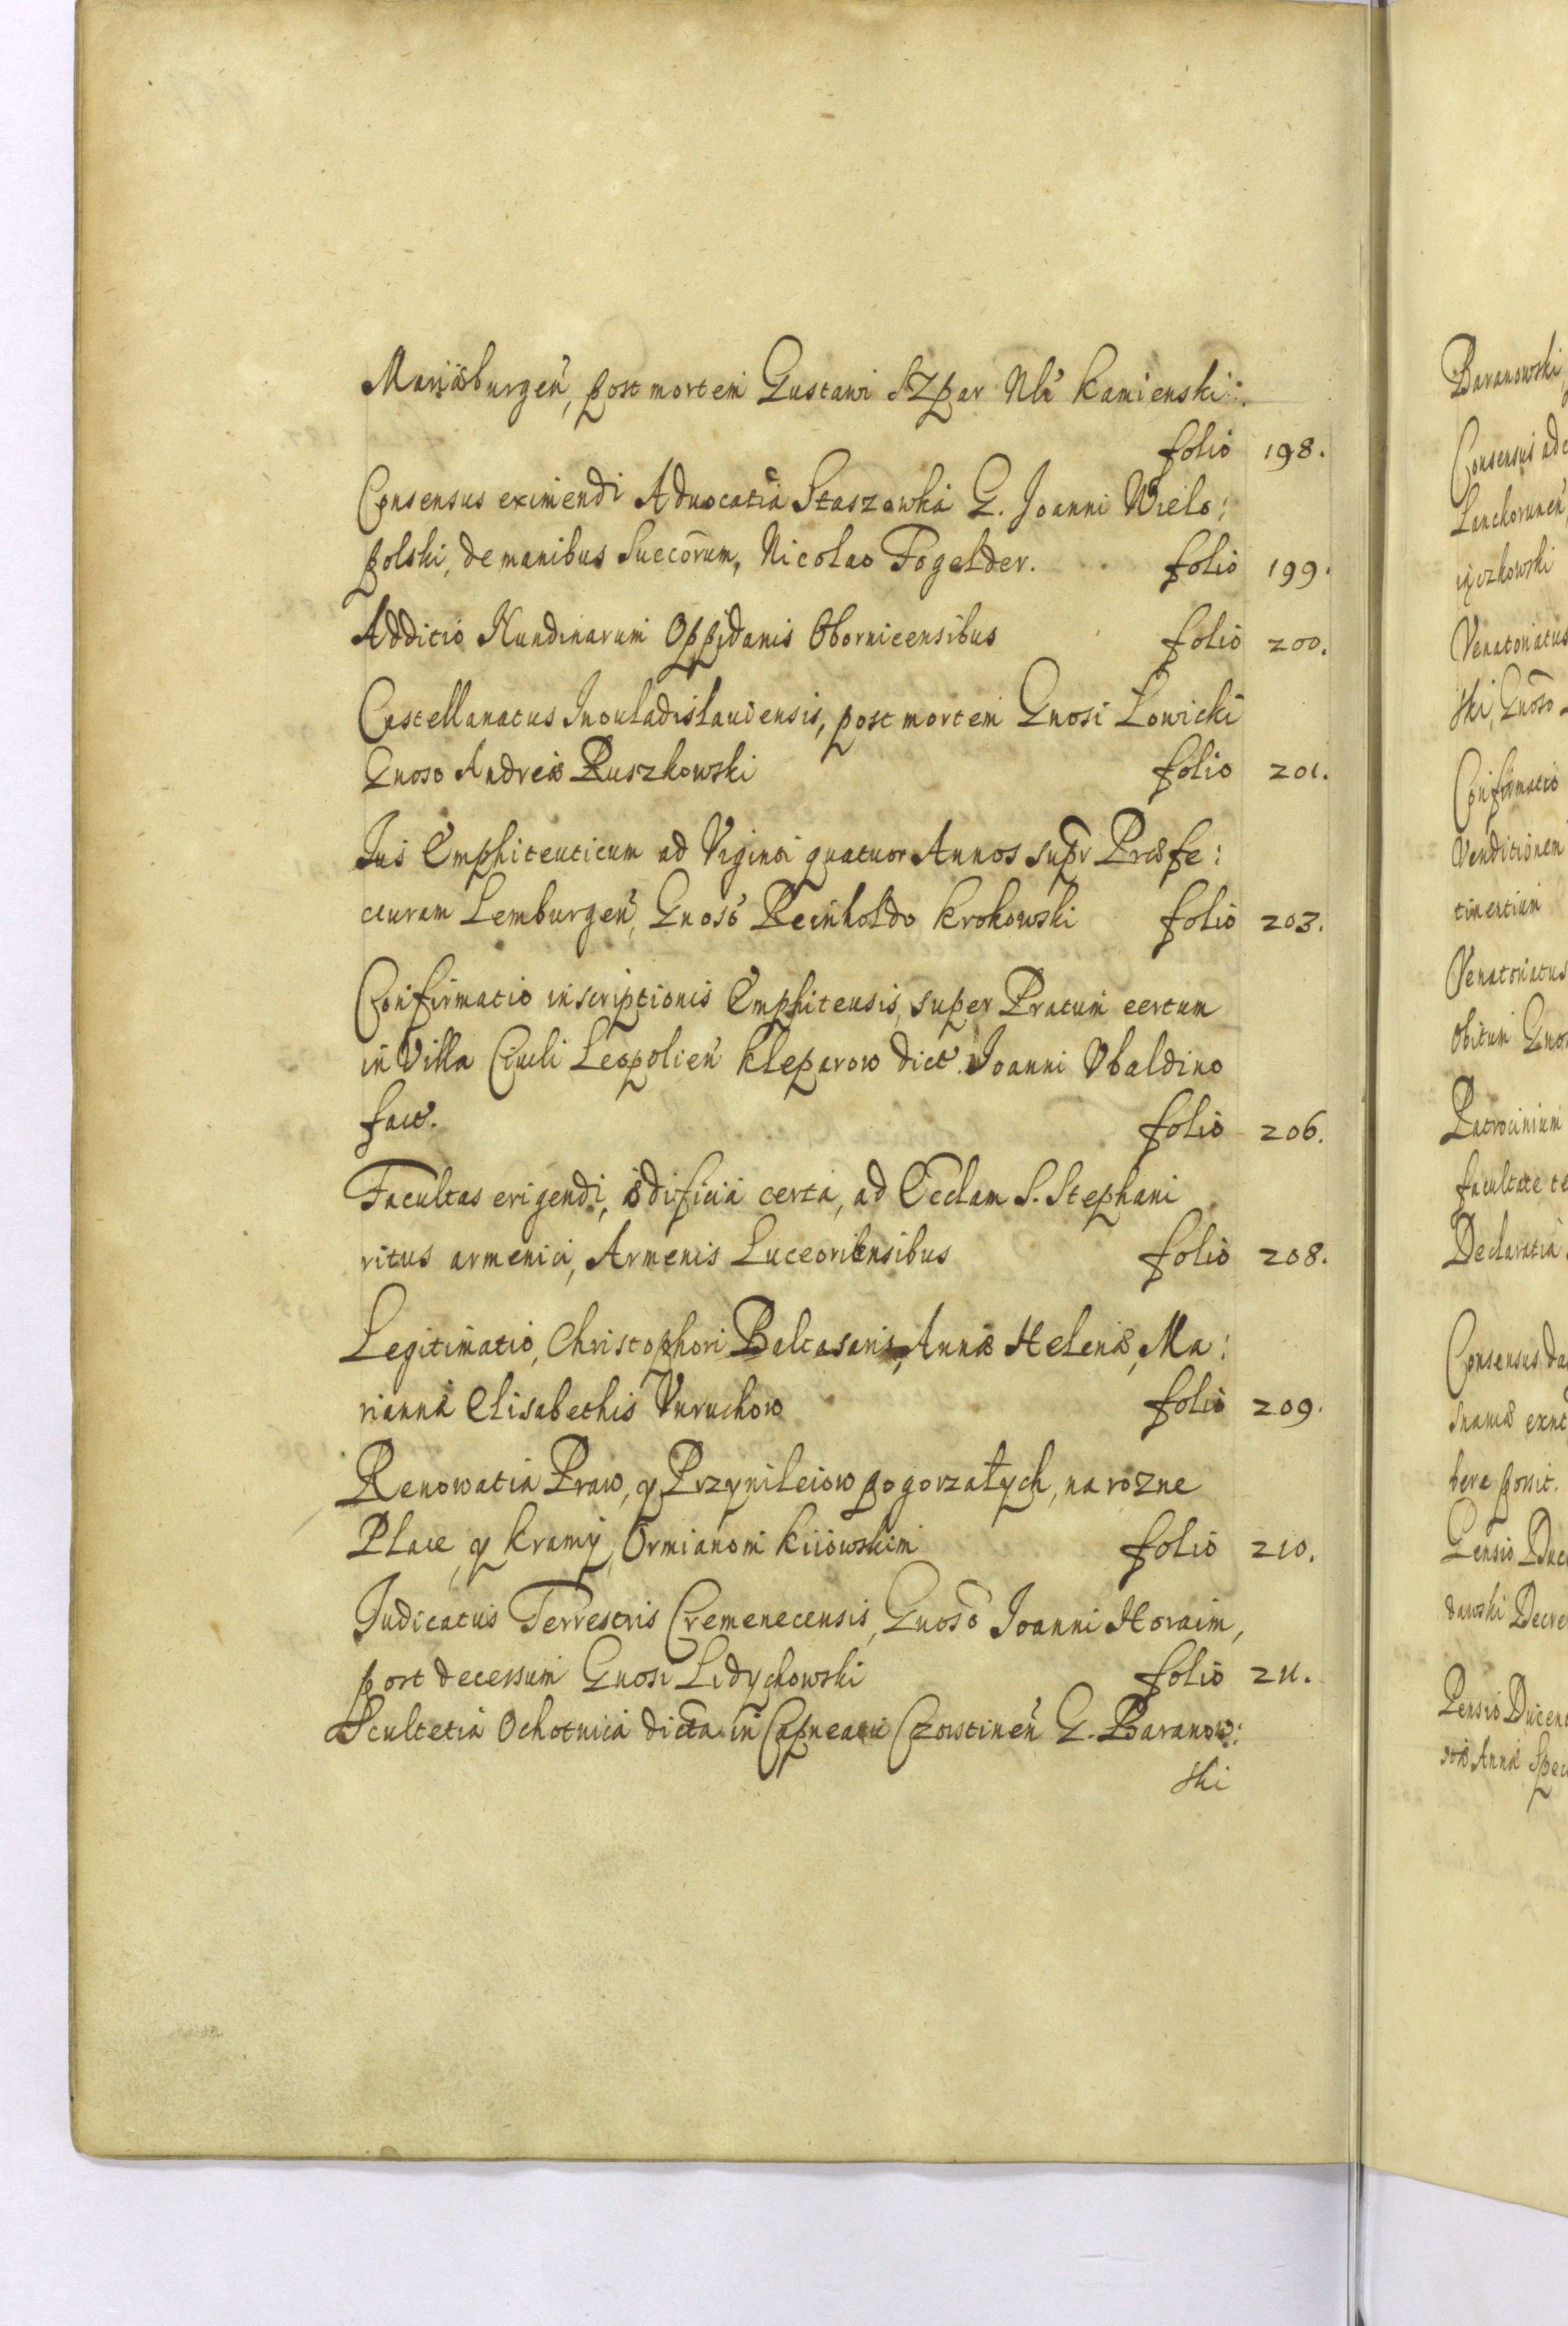 Mariæburgen̄, post mortem Gustawi Szpar Nli Kamienski:.
folio 198.
Consensus eximendi Advocatia Staszowka G. Joanni Wielo:
polski, de manibus Succorum, Nicolao Fogelder. folio 199.
Additio Nundinarum Oppidanis Obornicensibus folio 200.
Castellanatus Inouladislauiensis, post mortem Gnosi Lowicki
Gnoso Andreæ Ruszkowski folio 201.
Jus Emphiteuticum ad Viginti quatuor Annos supr Præfe:
cturam Lemburgen̄, Gnoso Reinholdo Krokowski folio 203.
Confirmatio inscriptionis Emphiteusis, super Pratum certum
in Villa Ciuli Leopolien̄ Kleparow dict. Joanni Vbaldino
fact. folio 206.
Facultas erigendi, ædificia certa, ad Eccliam S. Stephani
ritus armenici, Armenis Luceoriensibus folio 208.
Legitimatio, Christophori Baltasaris, Annæ Helenæ, Ma:
riannæ Elisabethis Vnruchow folio 209.
Renowatia Praw, y Przywileiow pogorzałych, na rozne
Place, y kramy, Ormianom kiiowskim folio 210.
Judicatus Terrestris Cremenecensis, Gnoso Joanni Horaim,
post decessum Gnosi Ledychowski folio 211.
Scultetia Ochotnica dicta in Capneatu Czorstinen̄ G. Baranow:
ski
Baranowski
Consensus ad
Lanckorunen̄
Venatoriatus
ski, Gnoso
Confirmatio
Venditionem
Venatoriatus
obitum Gnos
Patrocinium
facultate
Declaratia
Consensus da
bere possit.
Pensio Duc
dawski Decre
Pensio Ducen
Annæ Spec